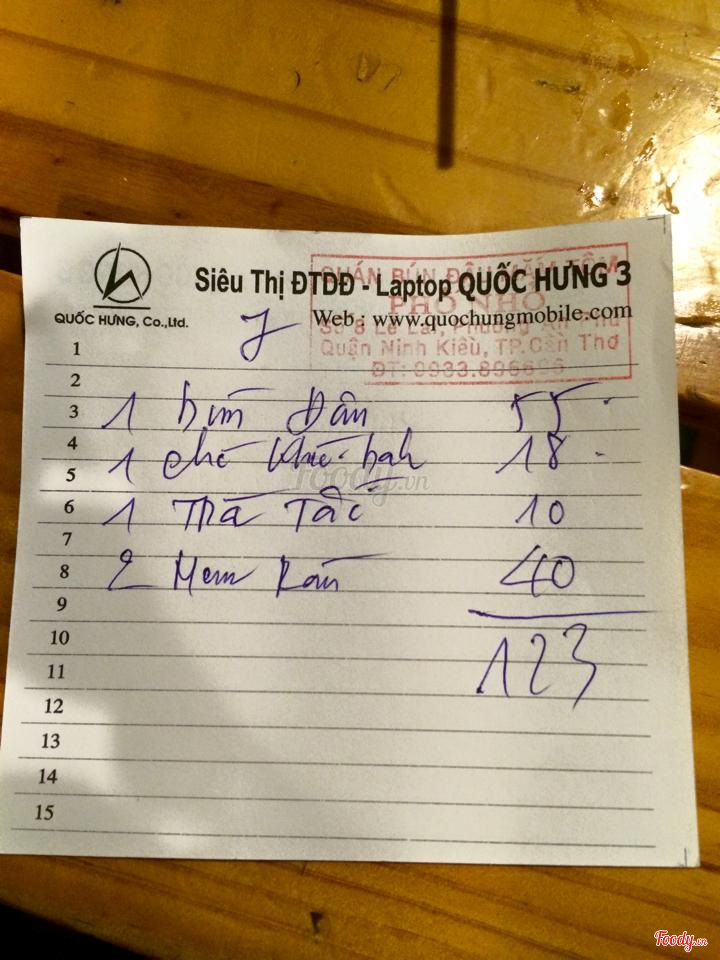 Siêu Thị ĐTDĐ - Laptop QUỐC HƯNG 3
QUỐC HƯNG, Co.,Ltd.
Web : www.quochungmobile.com
QUÁN BÚN ĐẬU MẮM TÔM
PHỐ NHỎ
Số 8 Lê Lai, Phường An Phú
Quận Ninh Kiều, TP.Cần Thơ
ĐT: 0933.896696
1
2
3 1 bún Đậu 55
4
5 1 chè 18
6 1 Trà Tắc 10
7
8 2 Nem Rán 40
9
10 123
11
12
13
14
15
foody.vn
Foody.vn